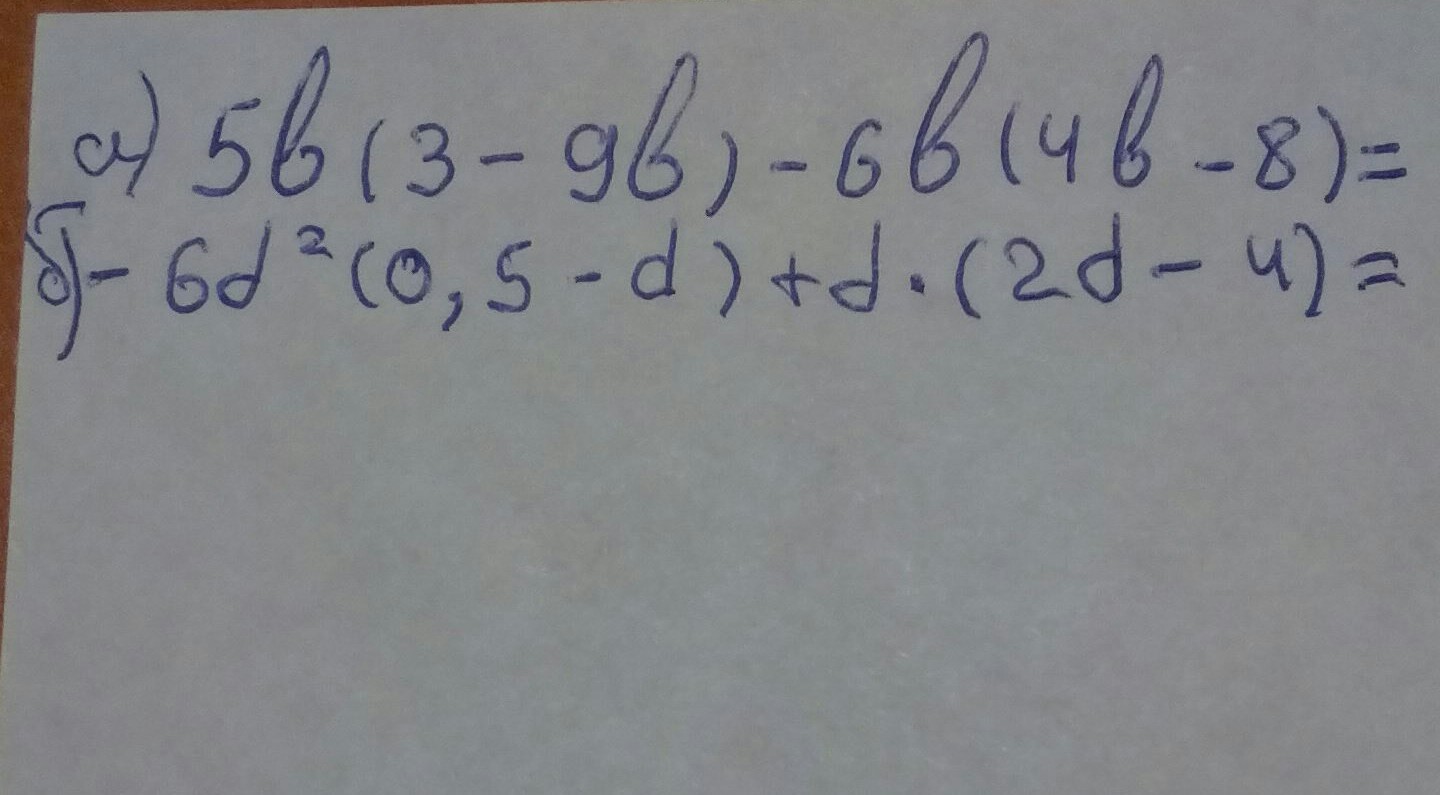 а) 5b(3 - 9b) - 6b(4b - 8) =
б) - 6d²(0,5 - d) + d · (2d - 4) =